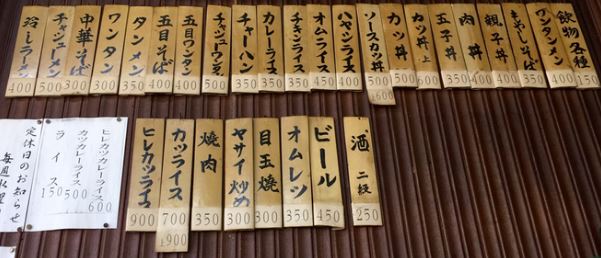 飲物各種 150
ワンタンメン 400
もやしそば 350
親子丼 400
肉丼 400
玉子丼 350
カツ丼上 600
カツ丼 500
ソースカツ丼 500
上600
ハヤシライス 400
オムライス 400
チキンライス 350
カレーライス 350
チャーハン 350
チャシューワンタン 500
五目ワンタン 400
五目そば 400
タンメン 350
ワンタン 300
中華そば 300
チャシューメン 500
冷しラーメン 400
酒 二級 250
ビール 450
オムレツ 350
目玉焼 300
ヤサイ炒め 300
焼肉 350
カツライス 700
上900
ヒレカツライス 900
ヒレカツカレーライス 600
カツカレーライス 500
ライス 150
定休日のお知らせ
毎週